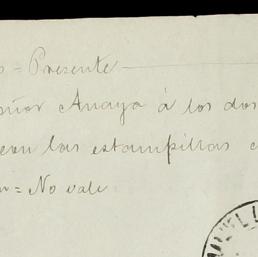 o = Presente
eñor Anaya á los dos
con las estampillas
= No vale